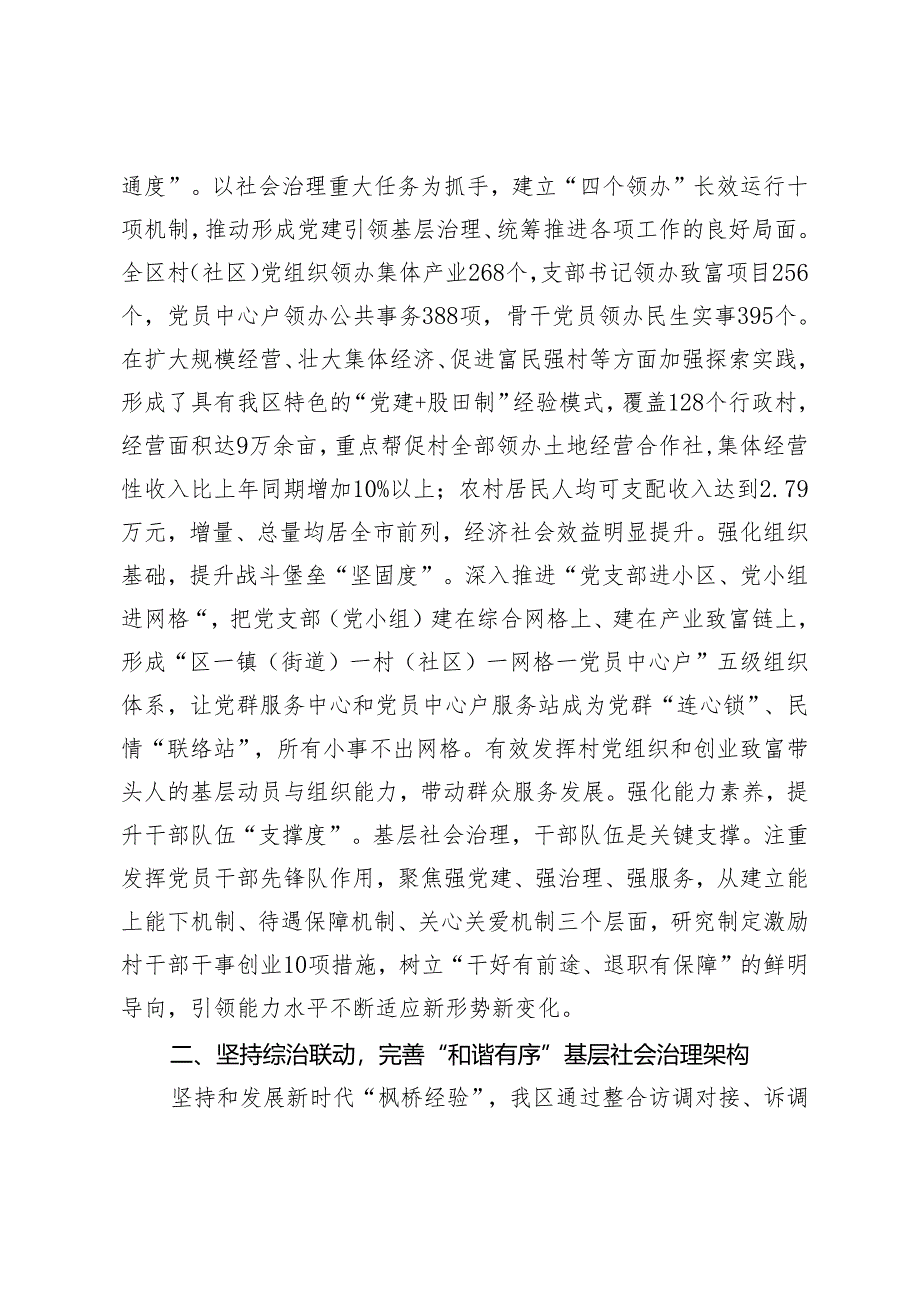 通度”。以社会治理重大任务为抓手，建立“四个领办”长效运行十
项机制，推动形成党建引领基层治理、统筹推进各项工作的良好局面。
全区村（社区）党组织领办集体产业268个，支部书记领办致富项目256
个，党员中心户领办公共事务388项，骨干党员领办民生实事395个。
在扩大规模经营、壮大集体经济、促进富民强村等方面加强探索实践，
形成了具有我区特色的“党建+股田制”经验模式，覆盖128个行政村，
经营面积达9万余亩，重点帮促村全部领办土地经营合作社,集体经营
性收入比上年同期增加10%以上；农村居民人均可支配收入达到2.79
万元，增量、总量均居全市前列，经济社会效益明显提升。强化组织
基础，提升战斗堡垒“坚固度”。深入推进“党支部进小区、党小组
进网格“，把党支部（党小组）建在综合网格上、建在产业致富链上，
形成“区一镇（街道）一村（社区）一网格一党员中心户”五级组织
体系，让党群服务中心和党员中心户服务站成为党群“连心锁”、民
情“联络站”，所有小事不出网格。有效发挥村党组织和创业致富带
头人的基层动员与组织能力，带动群众服务发展。强化能力素养，提
升干部队伍“支撑度”。基层社会治理，干部队伍是关键支撑。注重
发挥党员干部先锋队作用，聚焦强党建、强治理、强服务，从建立能
上能下机制、待遇保障机制、关心关爱机制三个层面，研究制定激励
村干部干事创业10项措施，树立“干好有前途、退职有保障”的鲜明
导向，引领能力水平不断适应新形势新变化。
二、坚持综治联动，完善“和谐有序”基层社会治理架构
坚持和发展新时代“枫桥经验”，我区通过整合访调对接、诉调